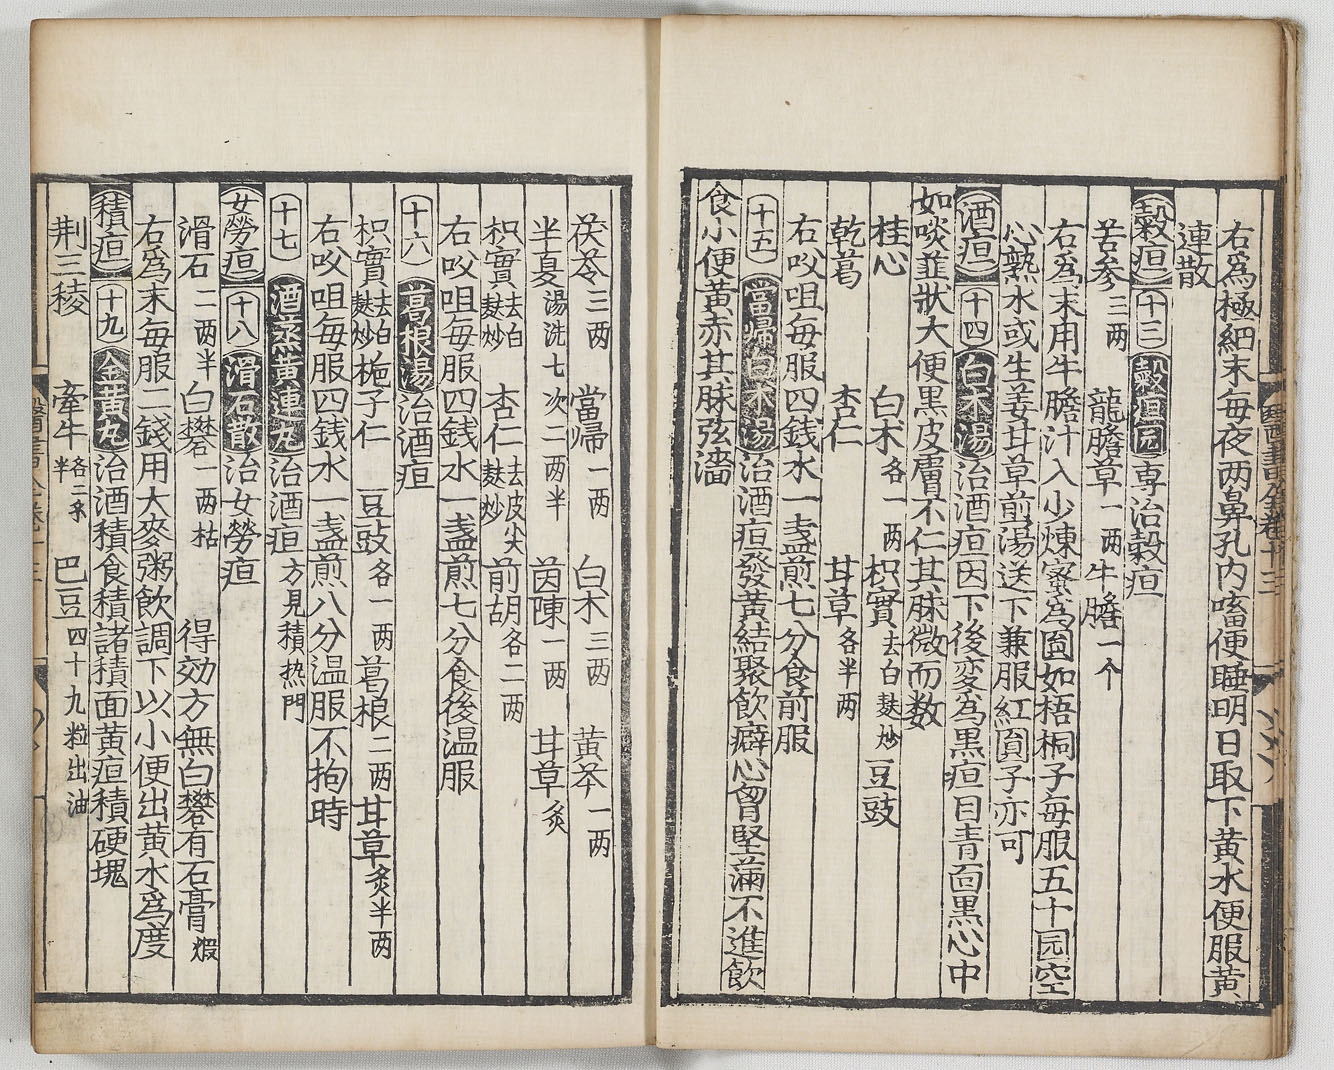 右爲極細末每夜两鼻孔内㗜便睡明日取下黄水便服黄
連散
穀疸 十三 穀疸园 専治穀疸
苦参三两 龍膽草一两 牛膽一个
右爲末用牛膽汁入少煉蜜爲圎如梧桐子每服五十园空
心熟水或生姜甘草煎湯送下兼服紅圎子亦可
酒疸 十四 白术湯 治酒疸因下後変爲黒疸目青面黒心中
如啖韮狀大便黒皮膚不仁其脉微而数
桂心 白术各一两 枳實去白麸炒 豆豉
乾葛 杏仁 甘草各半两
右㕮咀每服四銭水一盏煎七分食前服
十五 當歸白术湯 治酒疸發黄結聚飲癖心胷堅滿不進飲
食小便黄赤其脉弦濇
茯苓三两 當歸一两 白术三两 黄芩一两
半夏湯洗七次二两半 茵陳一两 甘草炙
枳實去白麸炒 杏仁去皮尖麸炒 前胡各二两
右㕮咀每服四銭水一盏煎七分食後温服
十六 葛根湯 治酒疸
枳實去白麸炒 梔子仁 豆豉各一两 葛根二两 甘草炙半两
右㕮咀每服四銭水一盏煎八分温服不拘時
十七 酒蒸黄連丸 治酒疸方見積热門
女勞疸 十八 滑石散 治女勞疸
滑石二两半 白礬一两枯 得効方無白礬有石膏煆
右爲末每服二錢用大麥粥飲調下以小便出黄水爲度
積疸 十九 金黄丸 治酒積食積諸積面黄疸積硬塊
荆三稜 牽牛各二半 巴豆四十九粒出油